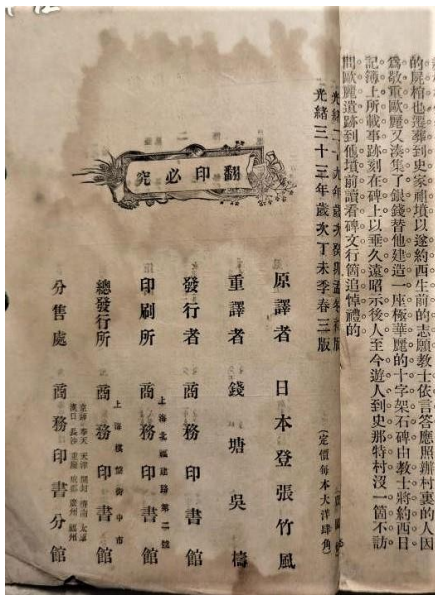 的屍棺也運葬到史家祠墳以遂約西生前的志願教士依言答應照辦村裏的人因
爲敬重歐麗又湊集了銀錢替他建造一座極華麗的十字架石碑由教士將約西日
記簿上所載事跡刻在碑上以垂久遠昭示後人至今遊人到史那特村沒一箇不訪
問歐麗遺跡到他墳前讀看碑文行箇追悼禮的
光緒二十九年歲次癸卯孟冬初版
光緒三十三年歲次丁未季春三版
(定價每本大洋肆角)
翻印必究
原譯者 日本登張竹風
重譯者 錢塘吳檮
發行者 商務印書館
上海北福建路第二號
印刷所 商務印書館
上海棋盤街中市
總發行所 商務印書館
京師 奉天 天津 開封 濟南 太原
漢口 長沙 重慶 成都 廣州 福州
分售處 商務印書分館